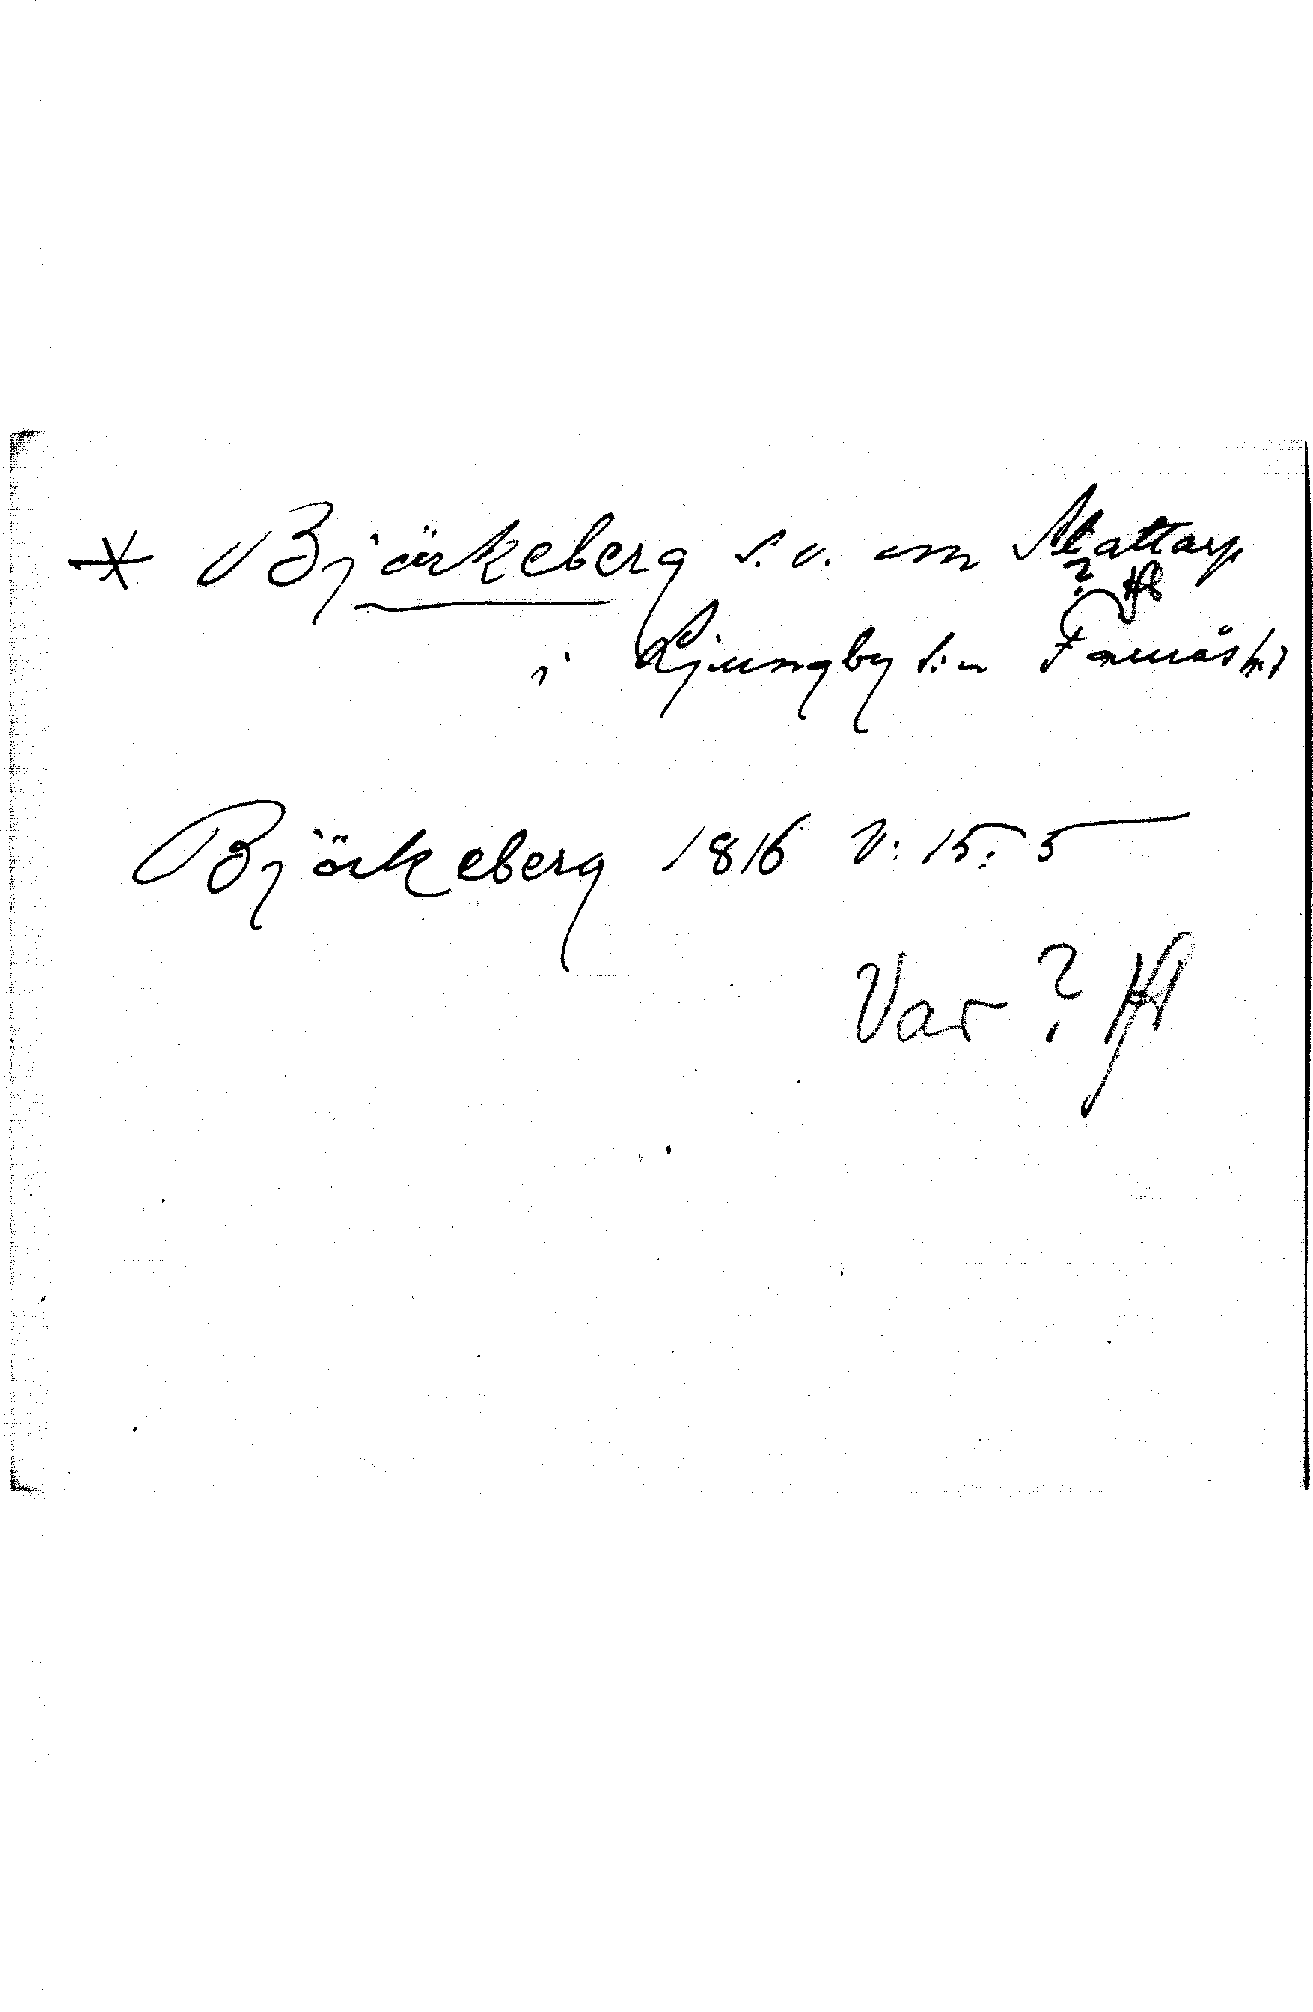 * Björkeberg s.v. om Slattarp
? Hfl
i Ljungby s:n Faurås hd
Björkeberg 1816 V: 15: 5
Var?